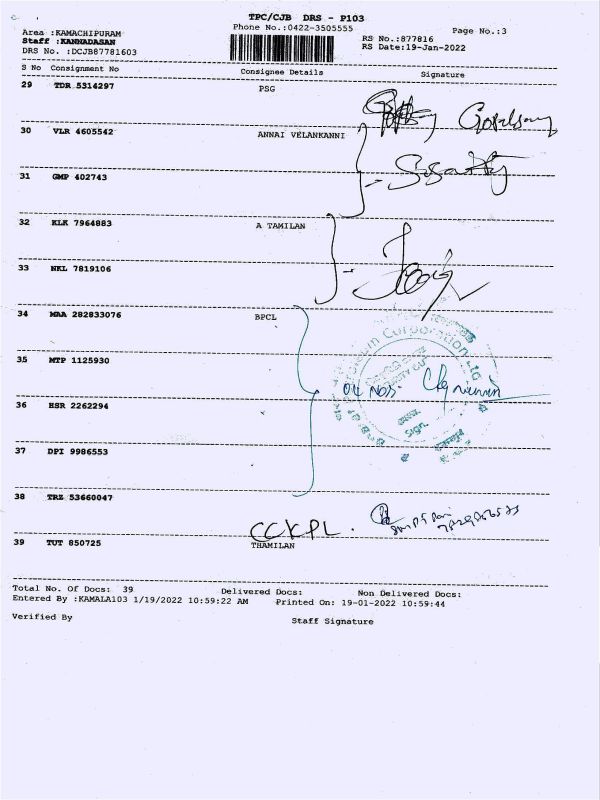 TPC/CJB DRS - P103
Phone No.:0422-3505555
Page No.:3
Area :KAMACHIPURAM
Staff :KANNADASAN
DRS No. :DCJB87781603
RS No.:877816
RS Date:19-Jan-2022
S No Consignment No Consignee Details Signature
29 TDR 5314297 PSG
30 VLR 4605542 ANNAI VELANKANNI
31 GMP 402743
32 KLK 7964883 A TAMILAN
33 NKL 7819106
34 MAA 282833076 BPCL
35 MTP 1125930
36 HSR 2262294
37 DPI 9986553
38 TRZ 53660047
CCKPL.
39 TUT 850725 THAMILAN
Total No. Of Docs: 39 Delivered Docs: Non Delivered Docs:
Entered By :KAMALA103 1/19/2022 10:59:22 AM Printed On: 19-01-2022 10:59:44
Verified By Staff Signature